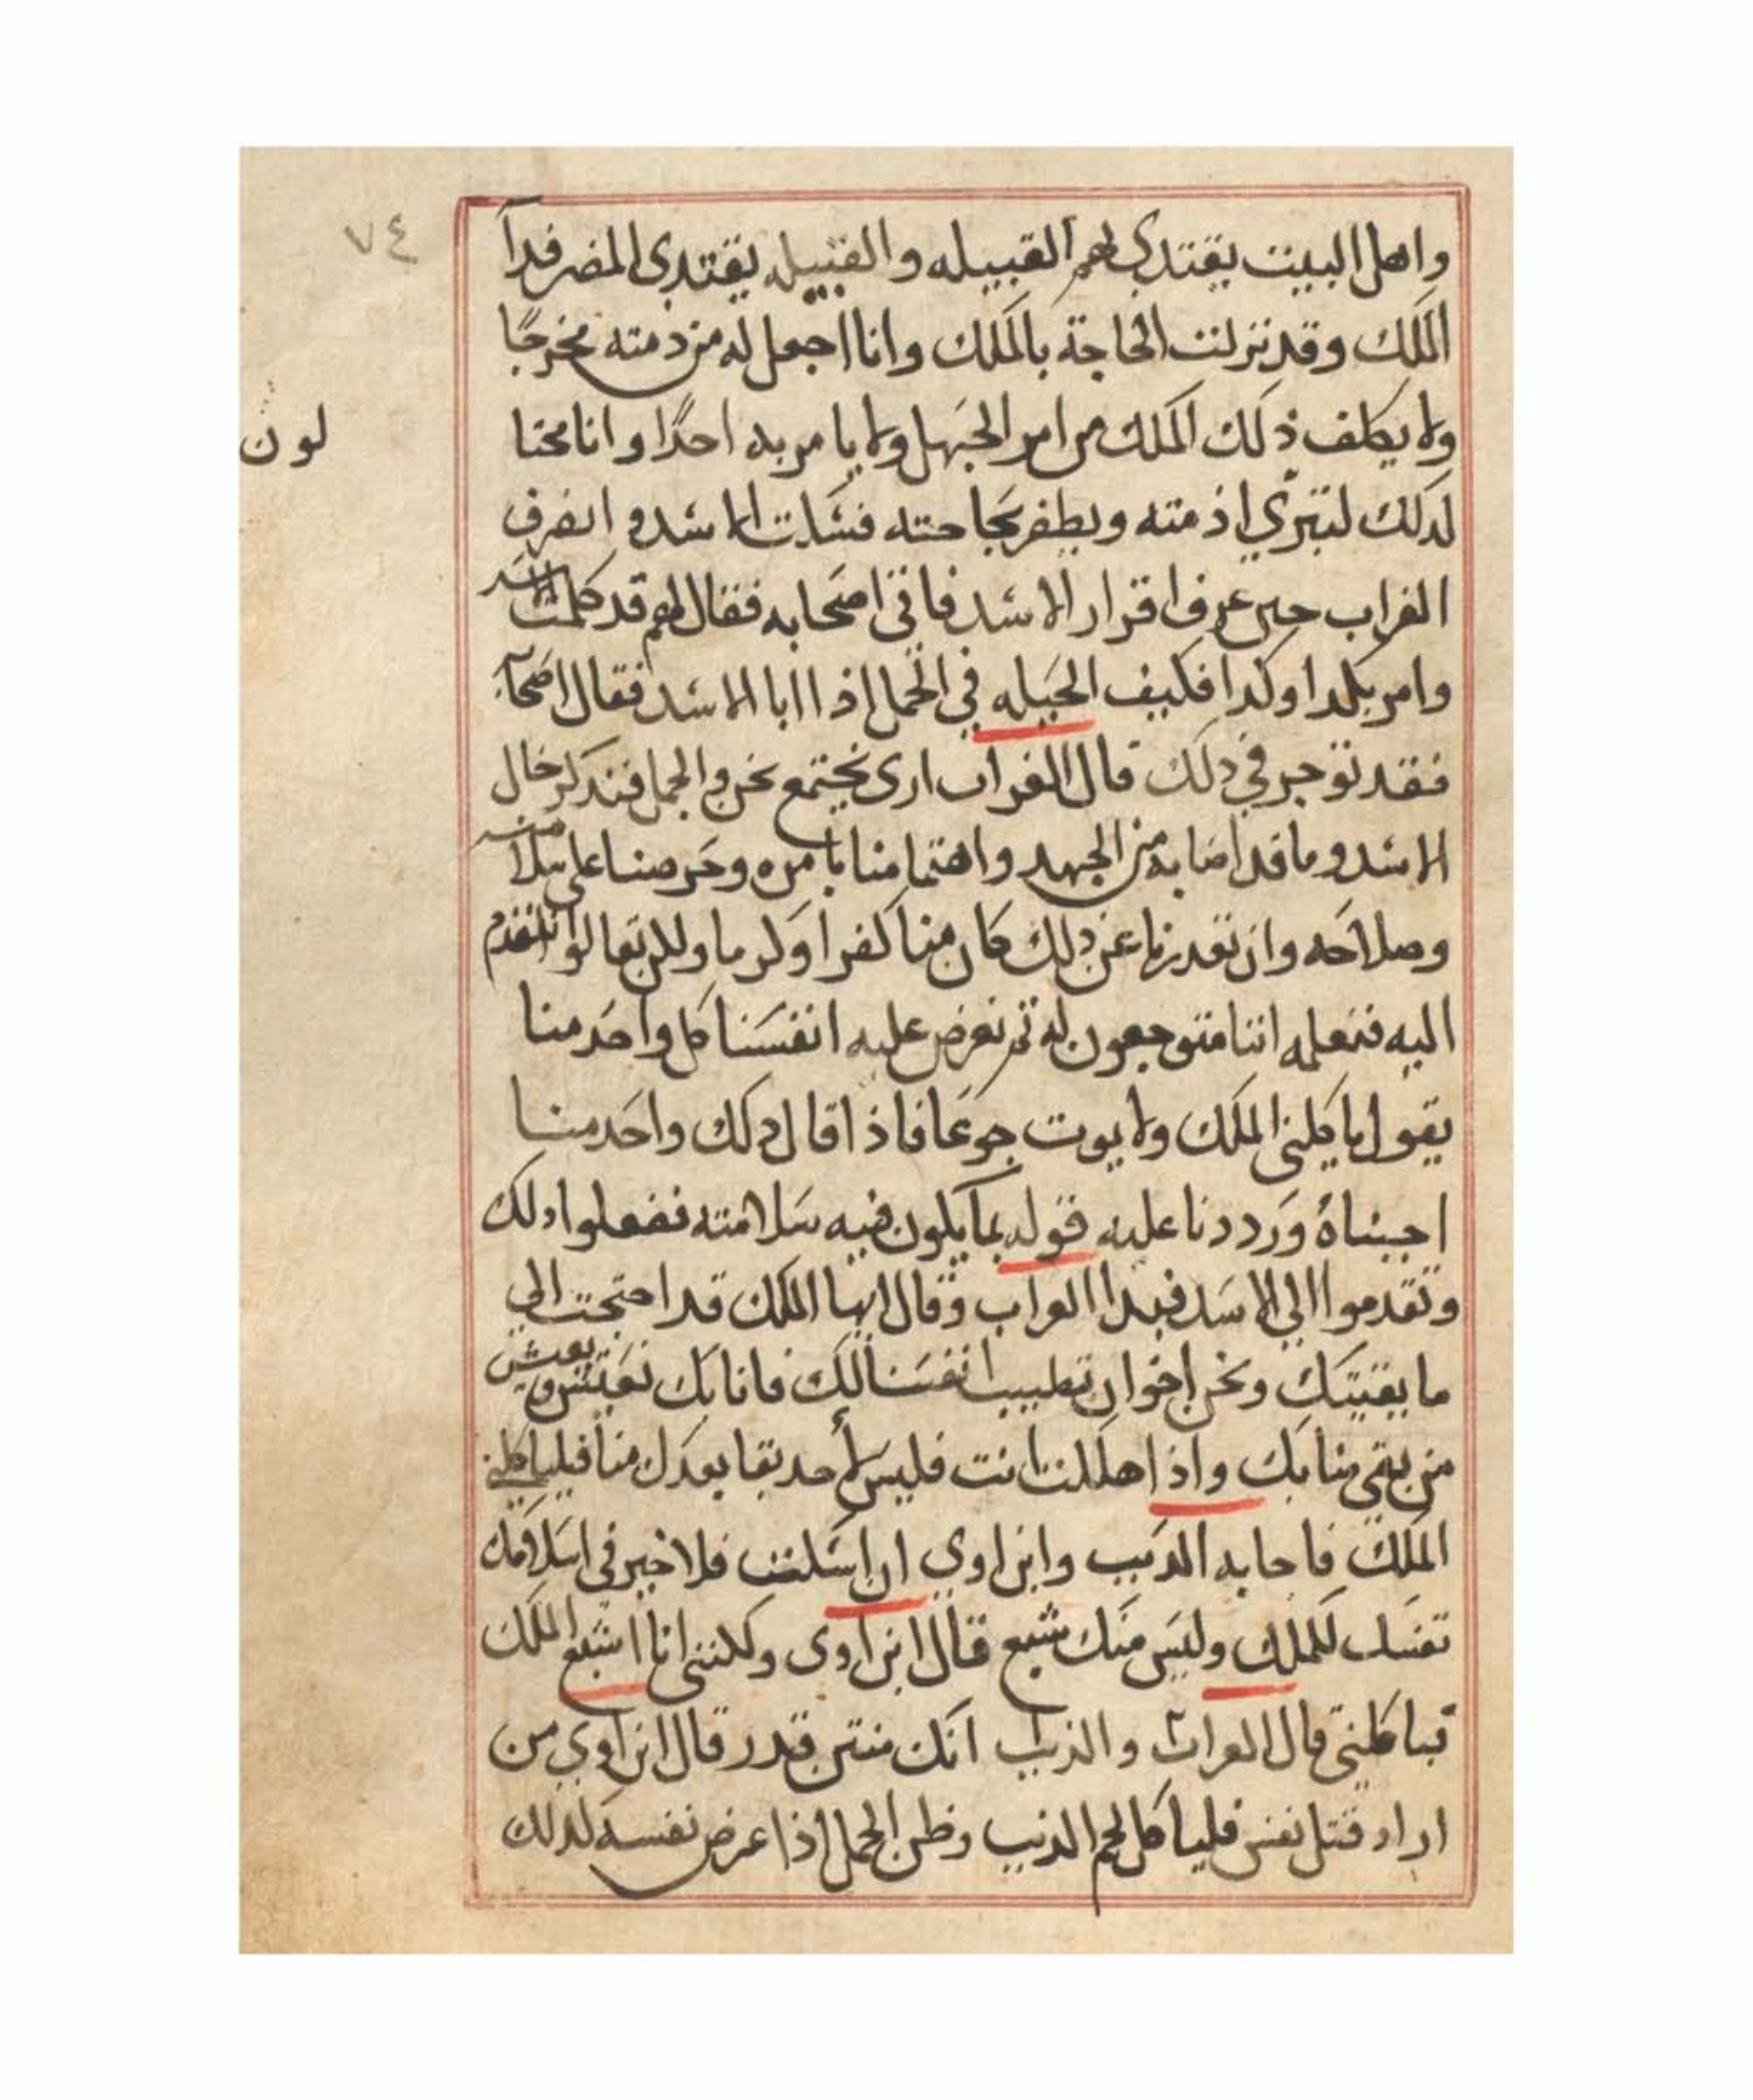 ٧٤
واهل البيت يفتدى بهم القبيله والقبيله يفتدى المصر فدآ
الملك وقد نزلت الحاجة بالملك وانا اجعل له من ذمته مخرجًا
ولا يكلف ذلك الملك من امر الجهل ولا يامر به احدًا وانا محتا
لون
لذلك لتبري اذمته ويظفر بحاحته فسكت الاسد وانصرف
الغراب حين عرف اقرار الاسد فاتى اصحابه فقال لهم قد كلمت الاسد
وامر بكدا وكدا فكيف الحيله في الجمل اذا ابا الاسد فقال اصحابه
فقد توجر في ذلك قال الغراب ارى نجتمع نحن والجمل فنذكر حال
الاسد وما قد اصابه من الجهد واهتمامنا بامره وحرصنا على سلامته
وصلاحه وان نقدر نا عن ذلك كان منا كفرا ولكن تعالوا نتقدم
اليه فنعلمه اننا متوجعون له ثم نعرض عليه انفسنا كل واحد منا
يقول ياكلني الملك ولا يموت جوعًا فاذا قال ذلك واحد منا
اجبناهُ ورددنا عليه قوله بما يكون فيه سلامته ففعلوا دلك
وتقدموا الي الاسد فبدا الغراب وقال ايها الملك قد احتجت الي
ما يقيتك ونحن اخوان تطيب انفسنا لك فانا بك نعيش ويعيش
من بقي منا بك واذا هلكت انت فليس لأحد بقا بعدك منا فلياكلني
الملك فاجابه الديب وابن اوي ان اسكت فلا خير في اكلامك
نفسك للملك وليس منك شبع قال ابن اوى ولكنني انا اشبع الملك
فياكلني قال الغراب والذيب انك منتن قدر قال ابن اوي من
اراد قتل نفس فلياكل لحم الذيب وظن الجمل اذا عرض نفسه لدلك